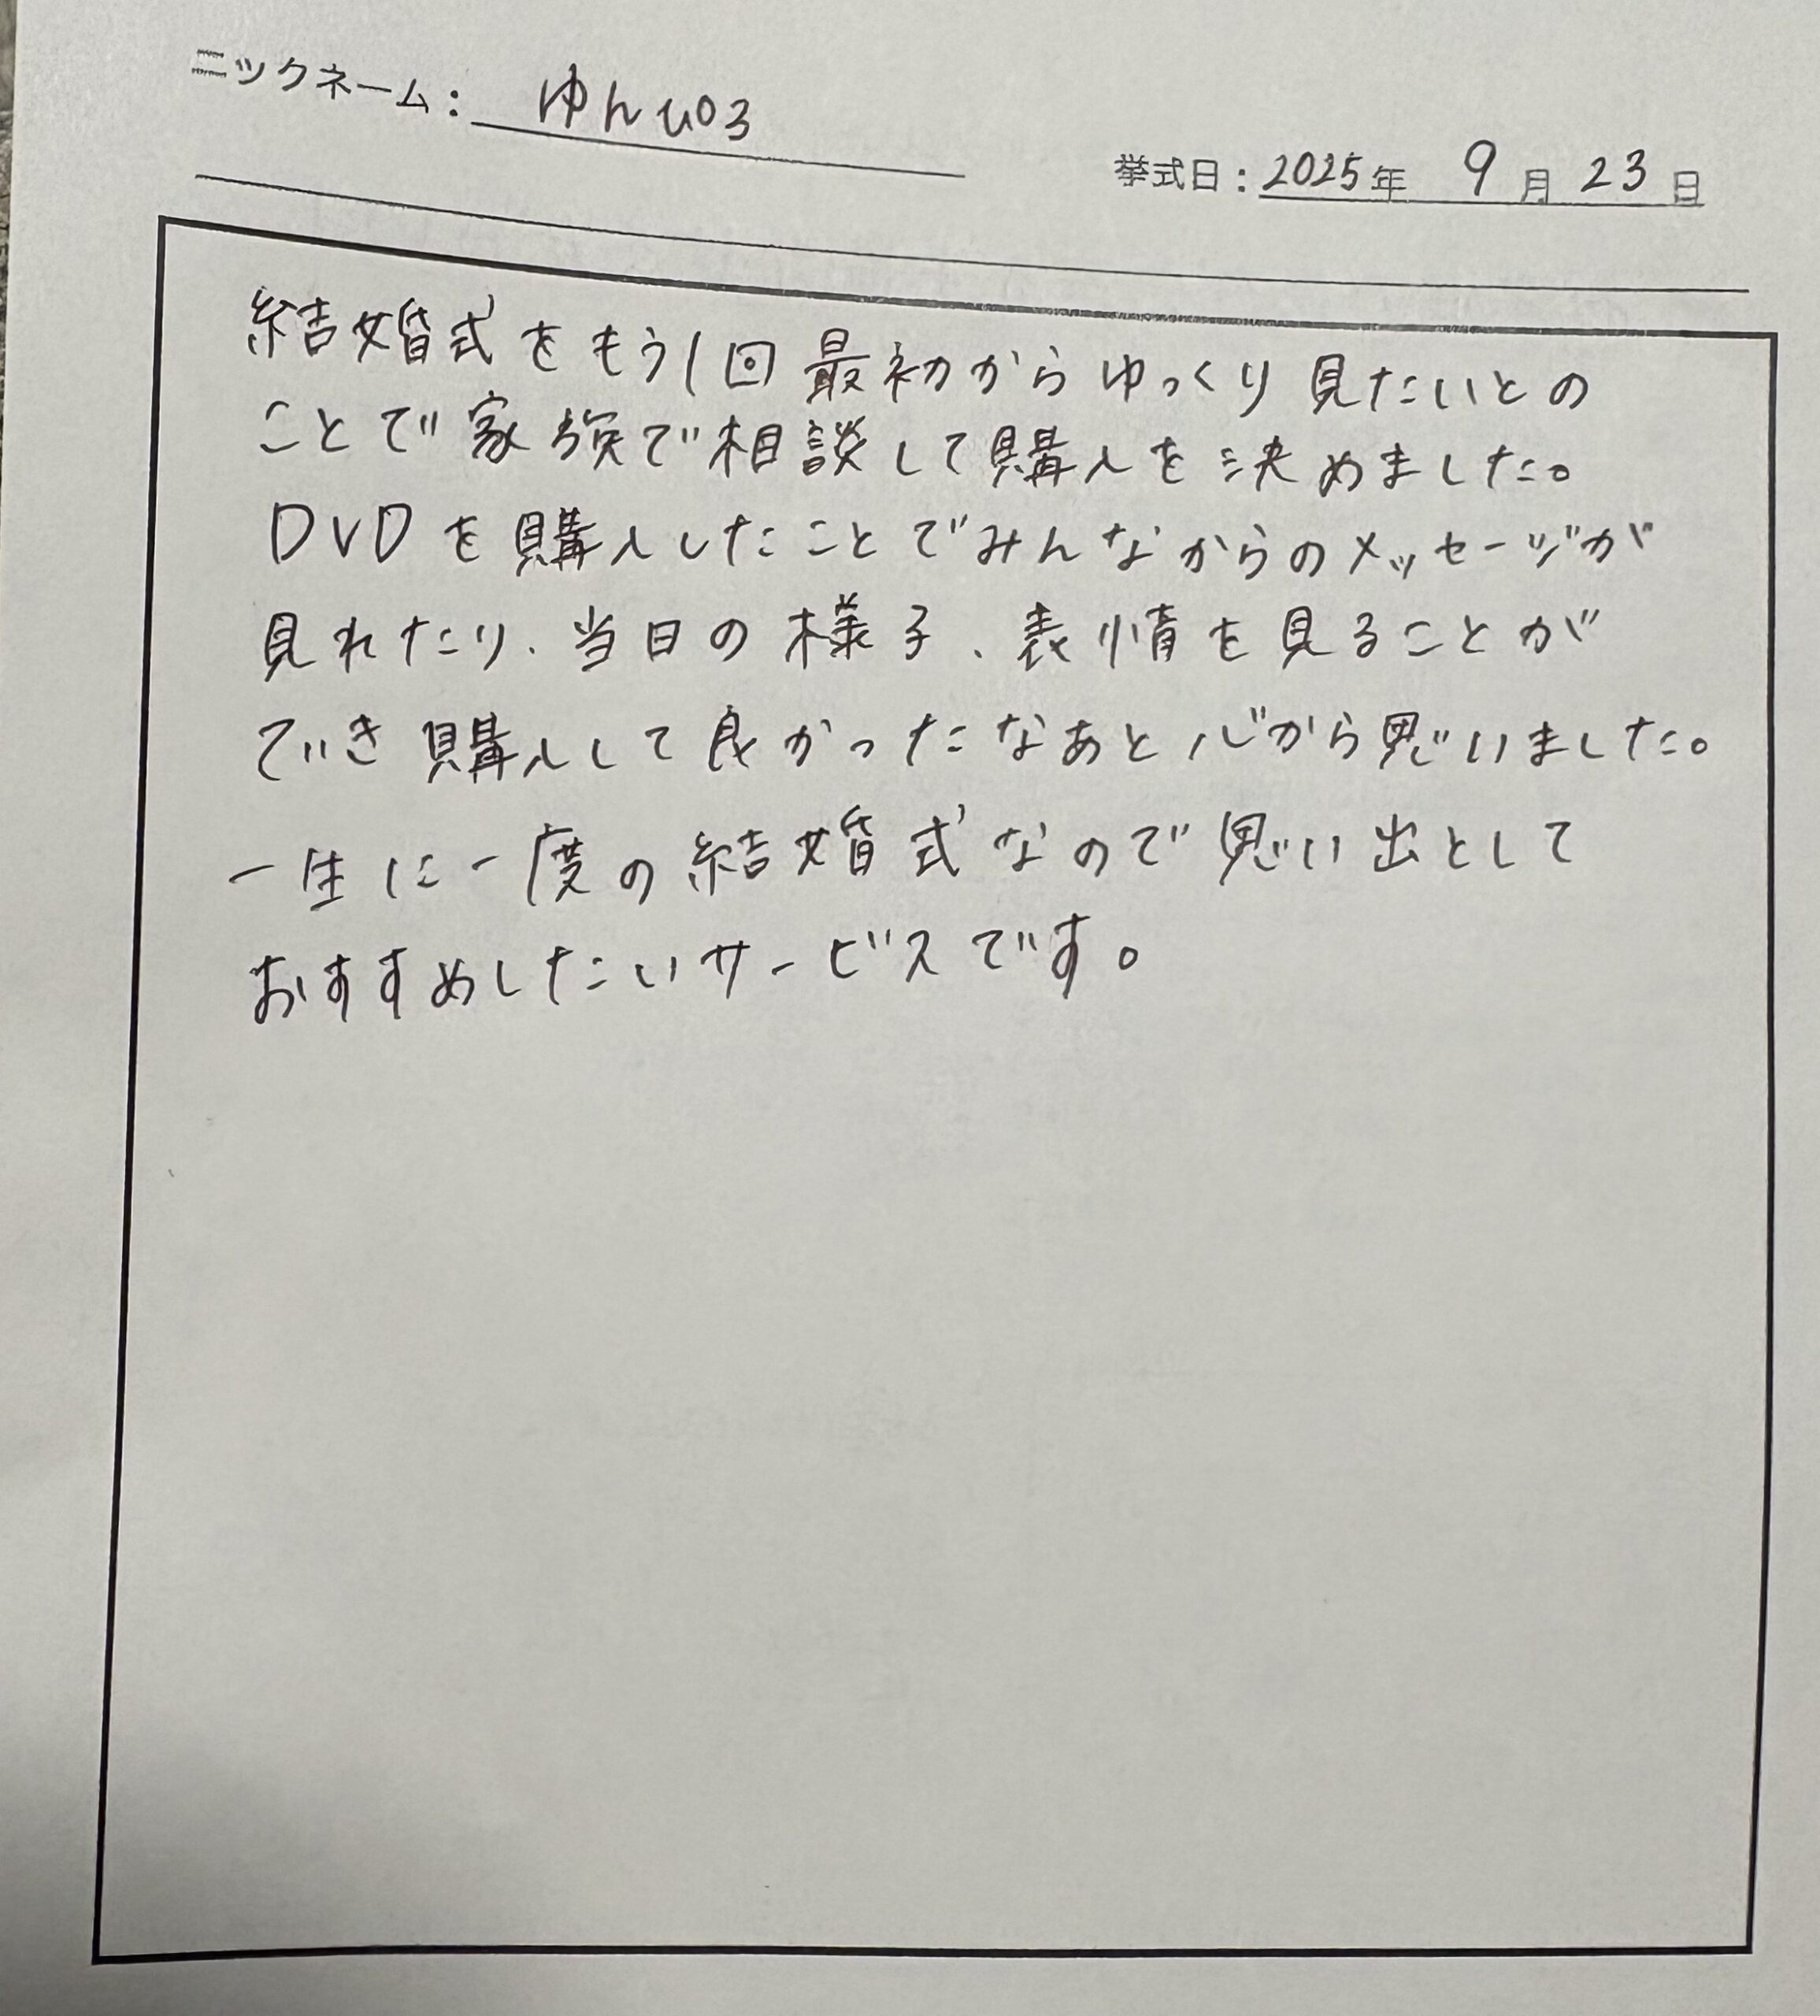 ニックネーム： ゆんひ03
挙式日：2025年 9月 23日
結婚式をもう1回最初からゆっくり見たいとの
ことで家族で相談して購入を決めました。
DVDを購入したことでみんなからのメッセージが
見れたり、当日の様子、表情を見ることが
でき購入して良かったなあと心から思いました。
一生に一度の結婚式なので思い出として
おすすめしたいサービスです。